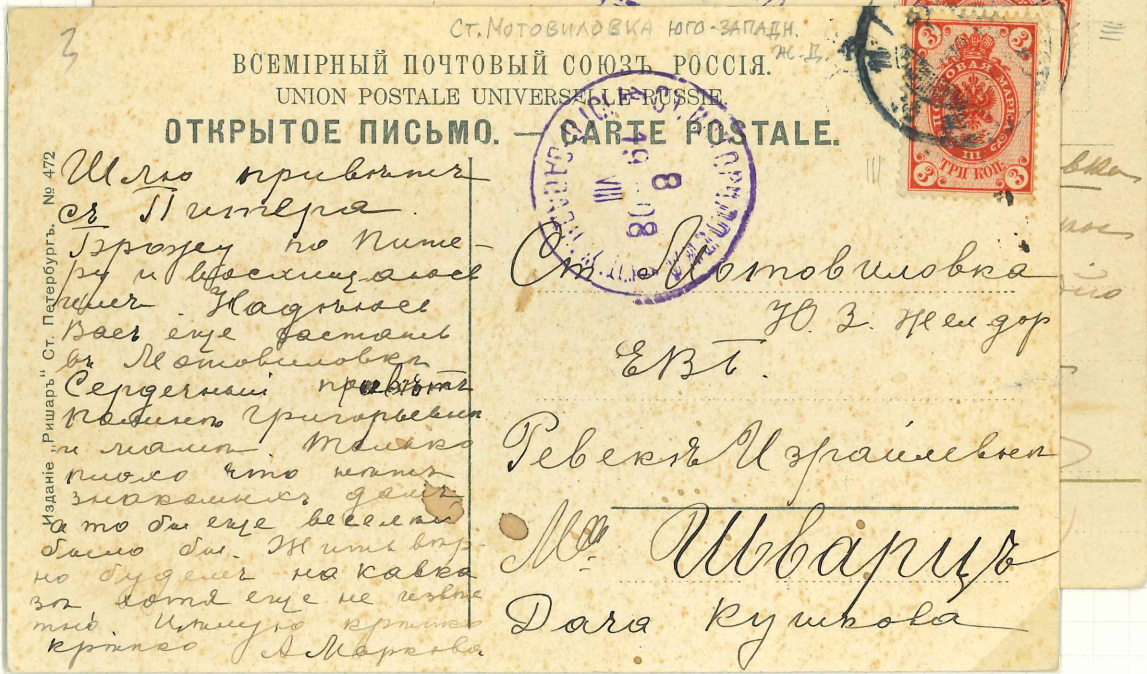 3
Ст. Мотовиловка юго-западн.
ж.д.
ВСЕМІРНЫЙ ПОЧТОВЫЙ СОЮЗЪ. РОССІЯ.
UNION POSTALE UNIVERSELLE RUSSIE.
ОТКРЫТОЕ ПИСЬМО. — CARTE POSTALE.
Изданіе „Ришаръ" Ст. Петербургъ. № 472
Шлю привѣтъ
съ Питера.
Брожу по Пите-
ру и восхищаюсь
имъ. Надѣюсь
Васъ еще застать
въ Мотовиловкѣ
Сердечный привѣтъ
Григорьевнѣ
и мамѣ. Только
плохо что нѣтъ
знакомыхъ дамъ
а то бы еще веселѣй
было бы. Жить вѣр-
но будемъ на Кавка
зѣ, хотя еще не извѣс
тно. Цѣлую крѣпко
крѣпко А Маркова
3 3
ПОЧТОВАЯ МАРКА
III
3 3
ТРИ КОП.
8
19 08
VIII
Ст. Мотовиловка
Ю. З. Жел дор
ЕВБ.
Ревеккѣ Израилевнѣ
Шварцъ
Дача Кушкова